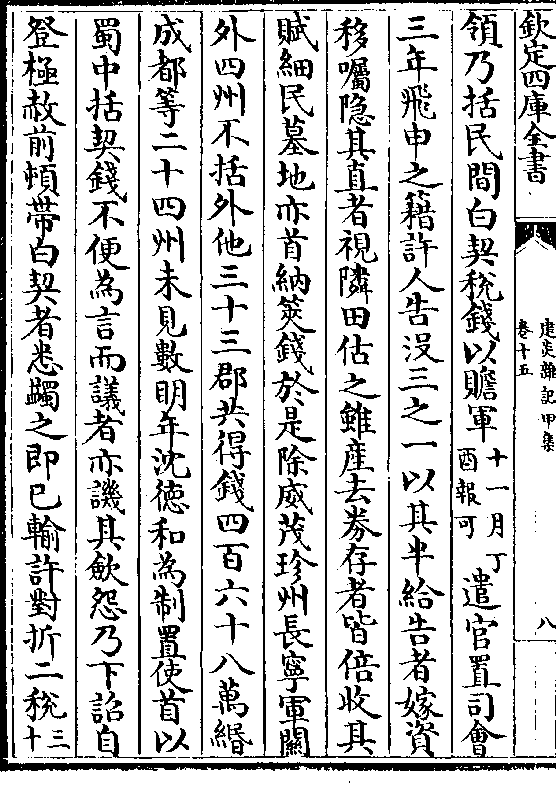 欽定四庫全書
建炎雜記甲集
卷十五
八
領乃括民間白契稅錢以贍軍十一月丁
酉報可遣官置司會
三年飛申之籍許人告没三之一以其半給告者嫁資
移囑隐其直者視隣田估之雖産去劵存者皆倍收其
賦細民墓地亦首納筴錢於是除威茂珍州長寧軍關
外四州不括外他三十三郡共得錢四百六十八萬緡
成都等二十四州未見數明年沈德和為制置使首以
蜀中括契錢不便為言而議者亦譏其歛怨乃下詔自
登極赦前頓帶白契者悉蠲之即已輸許對折二稅三
十